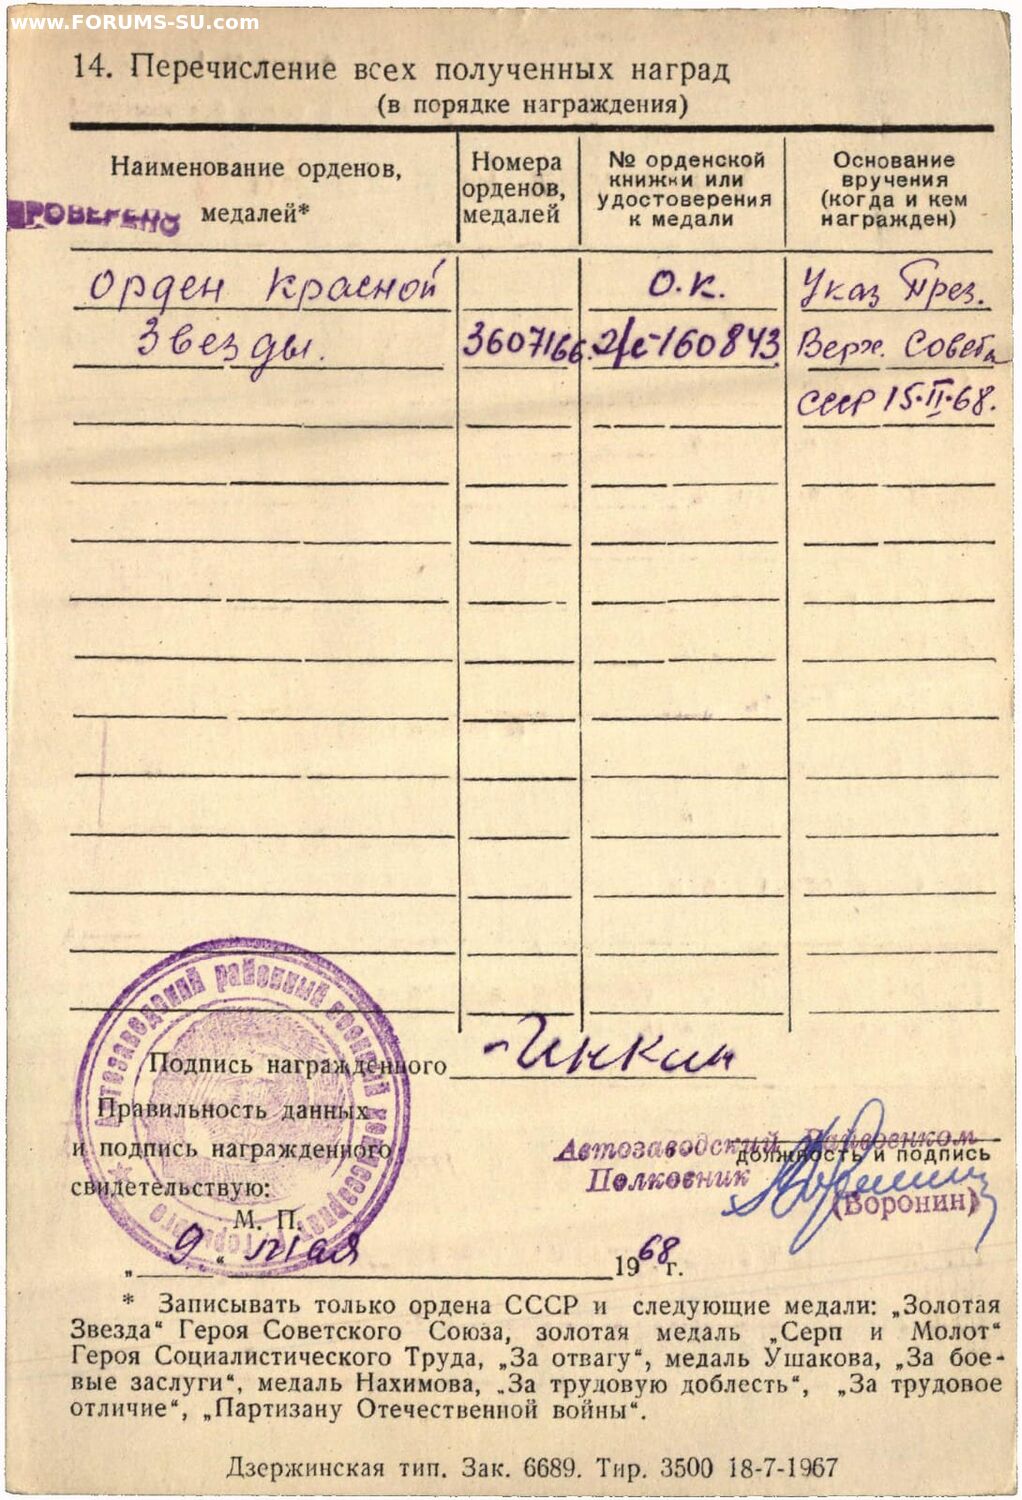 www.FORUMS-SU.com
14. Перечисление всех полученных наград
(в порядке награждения)
Наименование орденов,
медалей*
Номера
орденов,
медалей
№ орденской
книжки или
удостоверения
к медали
Основание
вручения
(когда и кем
награжден)
ПРОВЕРЕНО
Орден Красной
О.К.
Указ През.
Звезды.
3607166.
160843
Верх. Совета
СССР 15.II.68.
Автозаводский районный военный комиссариат г. Горького
Подпись награжденного
Инкин
Правильность данных
и подпись награжденного
свидетельствую:
М. П.
Автозаводский Райвоенком
должность и подпись
Полковник
(Воронин)
„ 9 “ мая 1968 г.
* Записывать только ордена СССР и следующие медали: „Золотая
Звезда“ Героя Советского Союза, золотая медаль „Серп и Молот“
Героя Социалистического Труда, „За отвагу“, медаль Ушакова, „За бое-
вые заслуги“, медаль Нахимова, „За трудовую доблесть“, „За трудовое
отличие“, „Партизану Отечественной войны“.
Дзержинская тип. Зак. 6689. Тир. 3500 18-7-1967